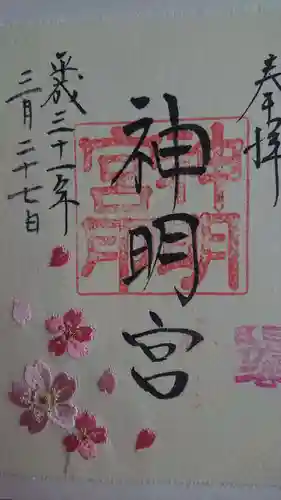 奉拝
神明宮
神明宮
平成三十一年
三月二十七日